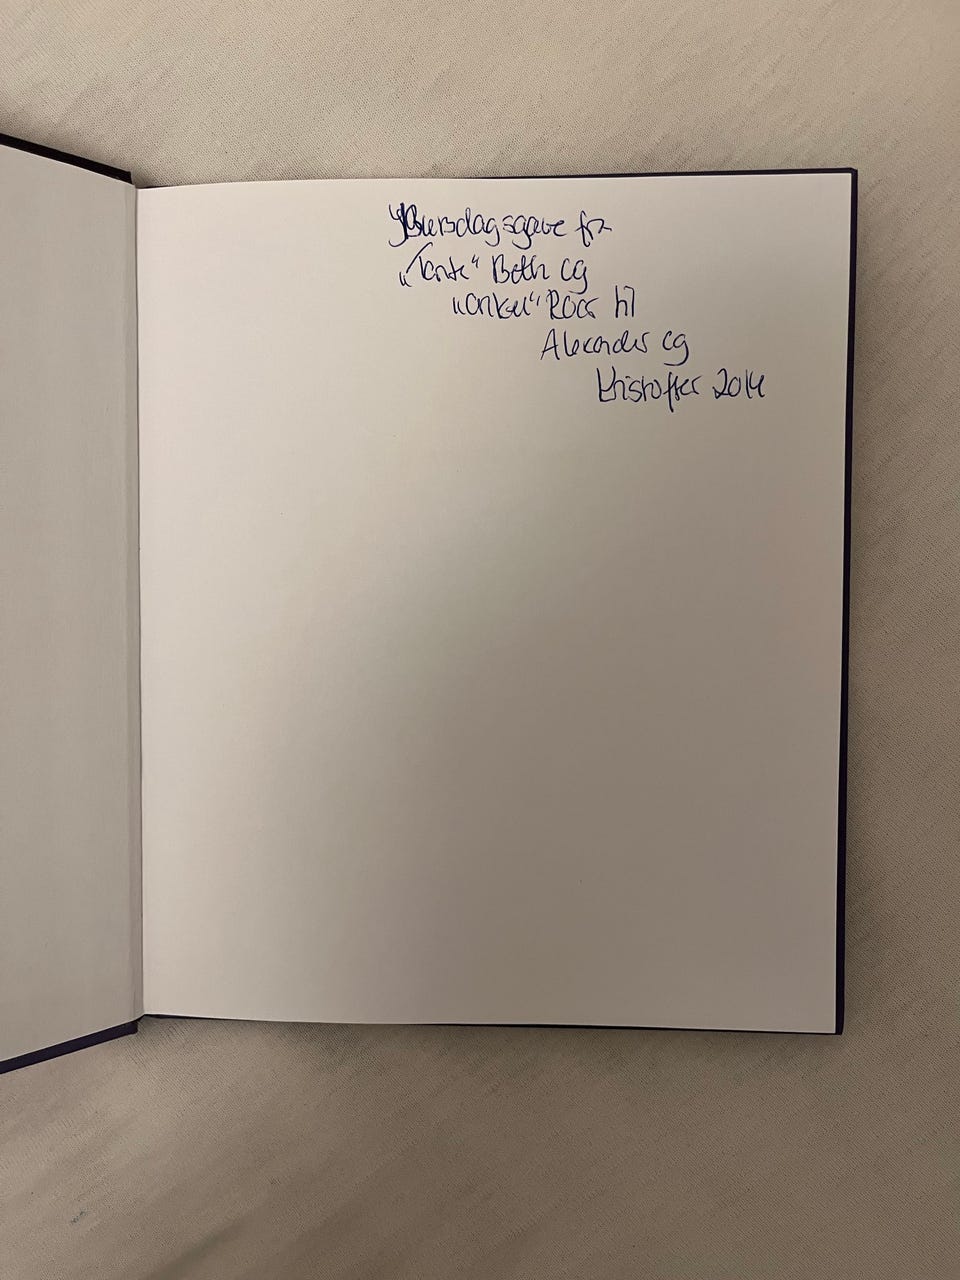 Bursdagsgave fra
„Tante“ Beth og
„onkel“ Roar til
Alexander og
Kristoffer 2014